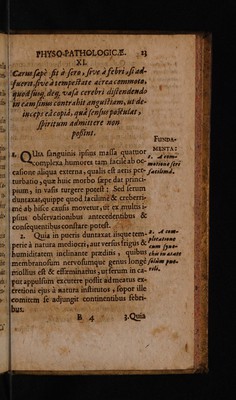 PHYSO-PATHOLOGICÆ. 23
XI.
Carus sæpè fit à sero, sive à febri, si ad-
fuerit, sive à tempestate aërea commoto,
quod suis, deq; vasa cerebri distendendo
in eam sinus contrahit angustiam, ut de-
inceps ea copiâ, quâ sensus postulat,
spiritum admittere non
possint.
FUNDA-
MENTA:
1. QUia sanguinis ipsius massa quatuor
complexa humores tam facilè ab oc-
casione aliqua externa, qualis est aeris per-
turbatio, quæ huic morbo sæpe dat princi-
pium, in vasis turgere potest: Sed serum
duntaxat, quippe quod facilimè & creberri-
mè ab hisce causis movetur, ut ex multis i-
psius observationibus antecedentibus &
consequentibus constare potest.
1. A com-
motione seri
facilimâ.
2. Quia in pueris duntaxat iisque tem-
perie à natura mediocri, aut versus frigus &
humiditatem inclinante præditis, quibus
membranosum nervosumque genus longè
mollius est & effeminatius, ut serum in ca-
put appulsum excutere possit ad meatus ex-
cretioni ejus à natura institutos, sopor ille
comitem se adjungit continentibus febri-
bus.
2. A tem-
peratione
solùm pue-
rili.
B 4 3. Quia